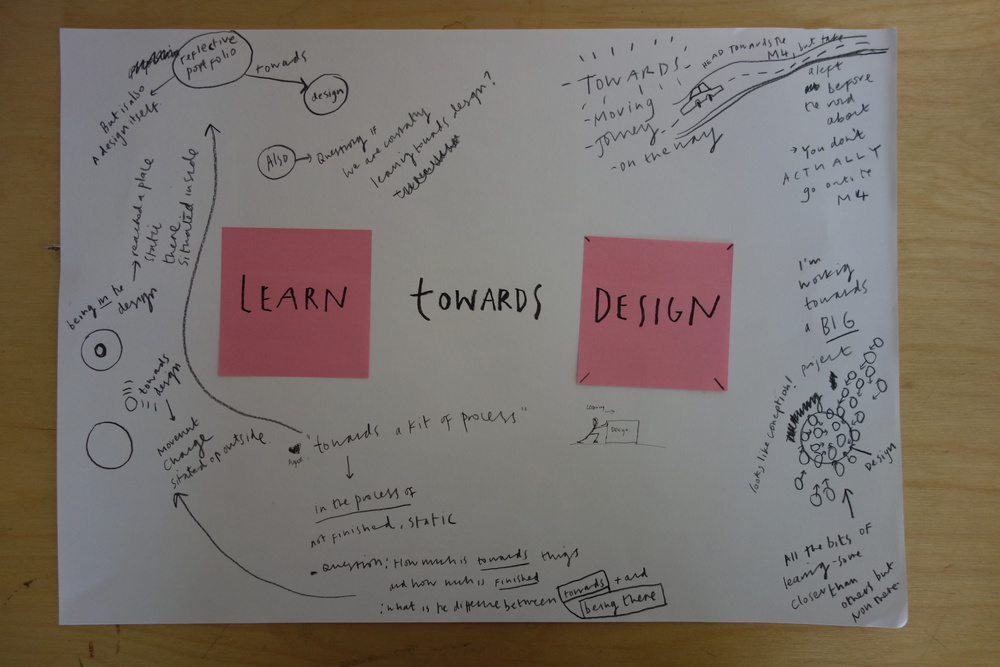 reflective
portfolio
towards
design
But is also
A design itself.
Also
Questioning if
we are constantly
learning towards design?
TOWARDS
Moving
Journey
on the way
HEAD TOWARDS THE
M4, but take
a left
before
the road
about
You don't
ACTUALLY
go onto the
M4
reached a place
static
there
situated inside
being in the
design
towards
design
Movement
Change
outside
LEARN
towards
DESIGN
I'm
working
towards
a BIG
project
looks like conception!
Design
All the bits of
learning - some
closer than
others but
non there
"towards a kit of process"
in the process of
not finished, static
Learning
Design
Question: How much is towards things
and how much is finished
: what is the difference between towards + and
being there